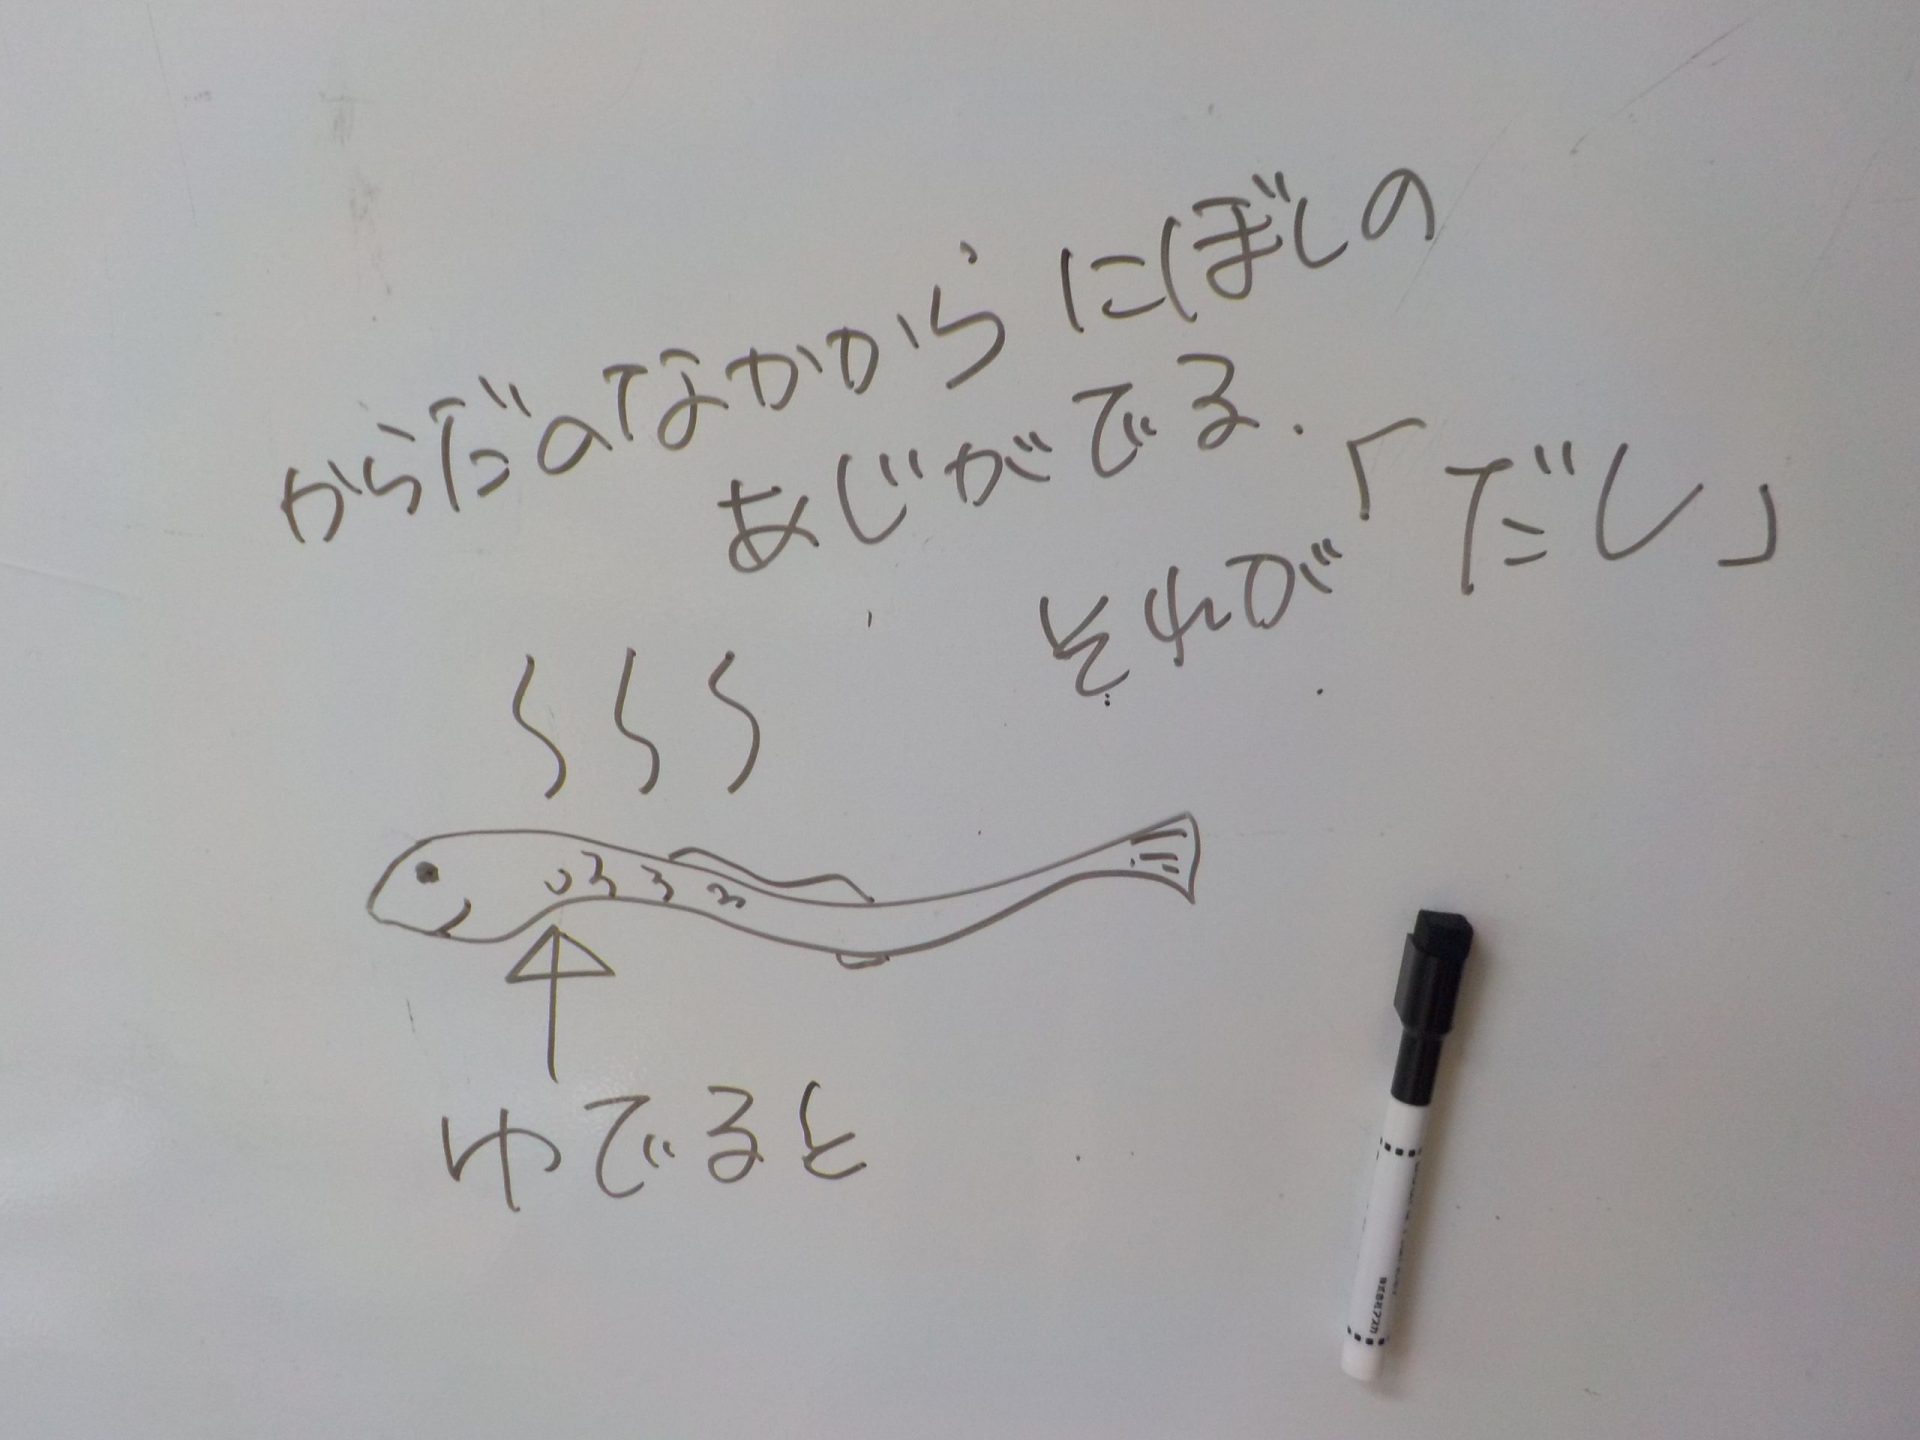 からだのなかから にぼしの
あじがでる.
それが「だし」
ゆでると